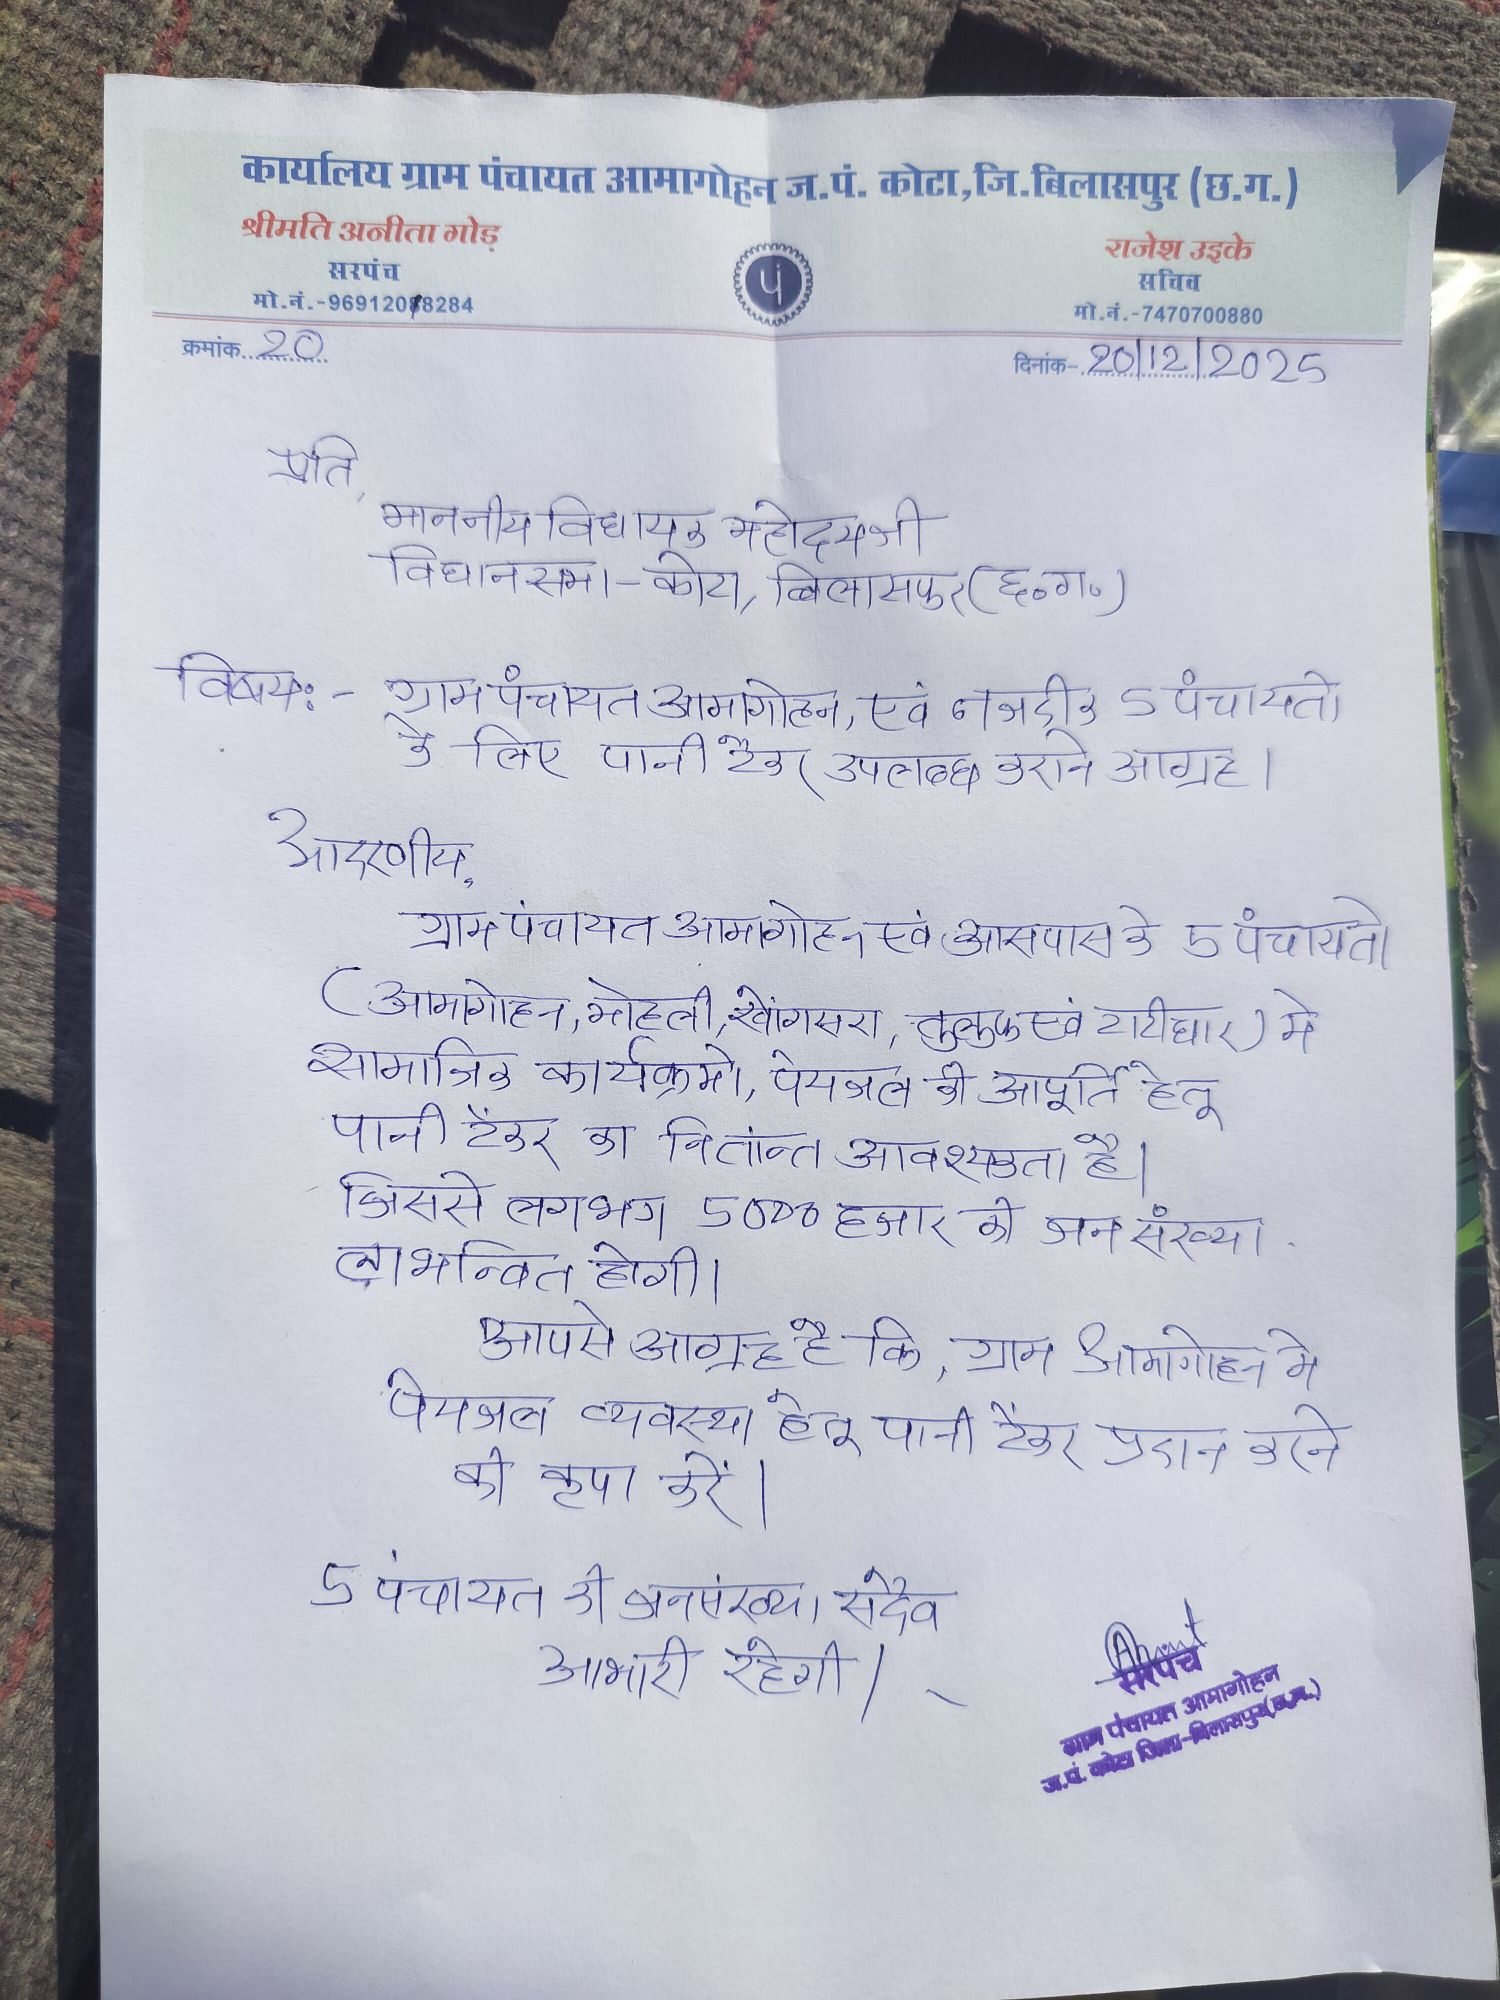 कार्यालय ग्राम पंचायत आमागोहन ज.पं. कोटा,जि.बिलासपुर (छ.ग.)
श्रीमति अनीता गोड़
सरपंच
मो.नं.-9691208284
पं
राजेश उइके
सचिव
मो.नं.-7470700880
क्रमांक 20
दिनांक- 20/12/2025
प्रति,
माननीय विधायक महोदय जी
विधानसभा - कोटा, बिलासपुर (छ०ग०)
विषय:- ग्राम पंचायत आमागोहन, एवं नजदीक 5 पंचायतो
के लिए पानी टैंकर उपलब्ध कराने आग्रह।
आदरणीय,
ग्राम पंचायत आमागोहन एवं आसपास के 5 पंचायतो
(आमागोहन, मोहली, खोंगसरा, तुलुफ एवं टाटीधार) मे
सामाजिक कार्यक्रमो, पेयजल की आपूर्ति हेतू
पानी टैंकर का नितांन्त आवश्यकता है।
जिससे लगभग 5000 हजार की जन संख्या
लाभन्वित होगी।
आपसे आग्रह है कि, ग्राम आमागोहन मे
पेयजल व्यवस्था हेतू पानी टैंकर प्रदान करने
की कृपा करें।
5 पंचायत की जनसंख्या सदैव
आभारी रहेगी।
सरपंच
ग्राम पंचायत आमागोहन
ज.पं. कोटा जिला-बिलासपुर(छ.ग.)